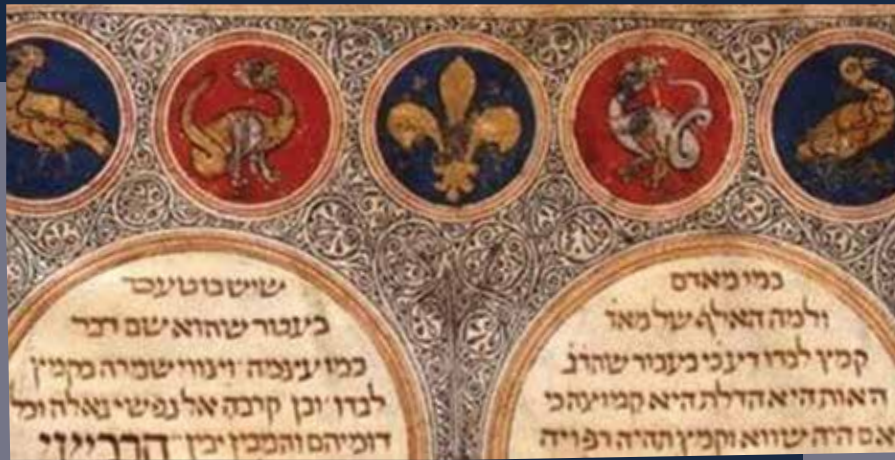 כמו מאדם
ולמה האלף של מאד
קמץ לבדו דע כי בעבור שהדל
האות היא הדלת היא קמוצה כי
אם היה שווא וקמץ תהיה רפויה
שיש בו טעם
בעבור שהוא שם דבר
כמו עצמה וינוי שמרה בקמץ
לבדו וכן קרבה אל נפשי גאלה וכל
דומיהם והמבין יבין